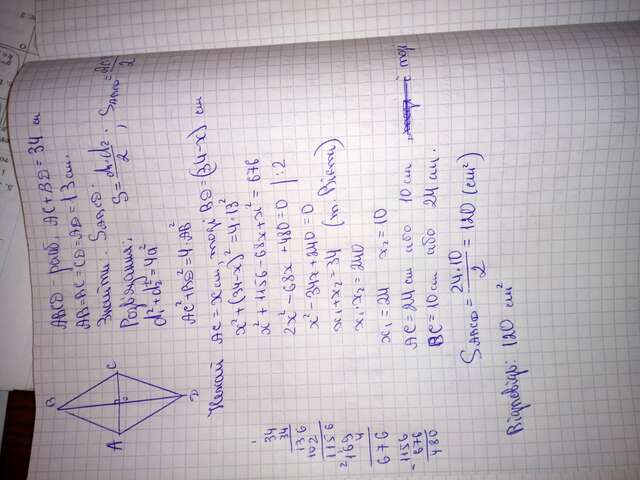 ABCD - ромб. AC+BD=34 см
AB=BC=CD=AD=13см.
Знайти: S_ABCD.
Розв'язання:
d₁²+d₂²=4a²
S=d₁·d₂/2; S_ABCD=AC
2
AC²+BD²=4·AB²
Нехай AC=xсм, тоді BD=(34-x) см
x²+(34-x)²=4·13²
x²+1156-68x+x²=676
2x²-68x+480=0 |:2
x²-34x+240=0
x₁+x₂=34 (т. Вієта)
x₁·x₂=240
x₁=24 x₂=10
AC=24см або 10см
BC=10см або 24см.
S_ABCD=24·10/2=120(см²)
Відповідь: 120 см²
B
A
C
D
34
34
136
102
1156
169
4
676
-1156
676
480